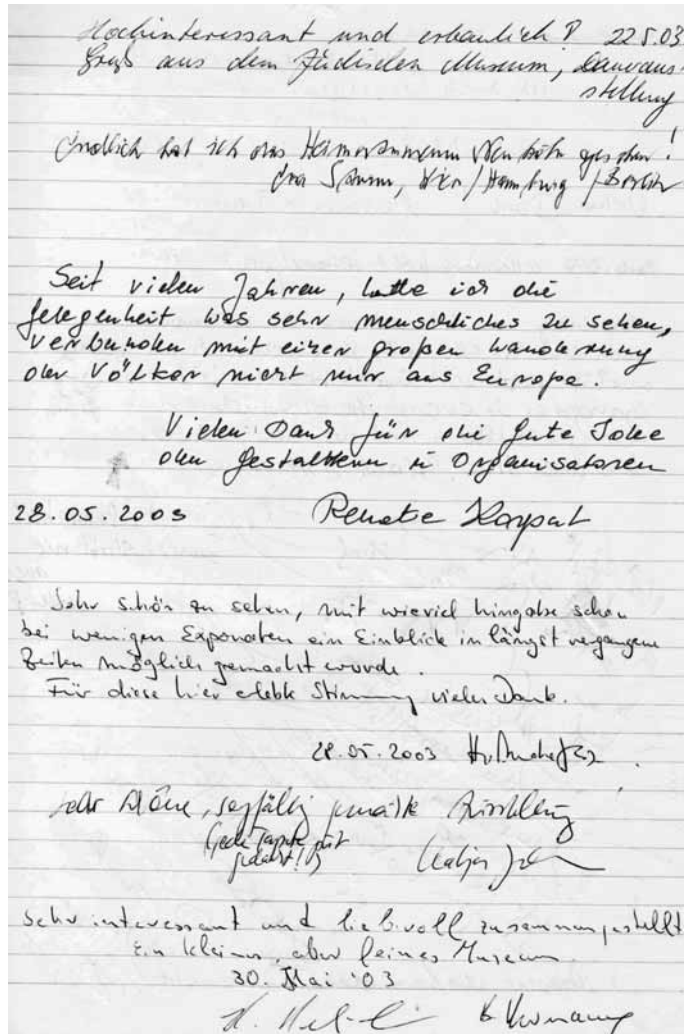 Hochinteressant und erbaulich! 22.5.03
Gruß aus dem Jüdischen Museum, Dauerausstellung
Endlich hat ich das Heimatmuseum Neukölln gesehen!
Sturm, Wien / Hamburg / Berlin
Seit vielen Jahren, hatte ich die
Gelegenheit was sehr menschliches zu sehen,
verbunden mit einer großen Wanderung
der Völker nicht nur aus Europa.
Vielen Dank für die gute Idee
den Gestaltern u Organisatoren
28.05.2003 Renate Karpat
Sehr schön zu sehen, mit wieviel Hingabe schon
bei wenigen Exponaten ein Einblick in längst vergangene
Zeiten möglich gemacht wurde.
Für diese hier erlebte Stimmung vielen Dank.
28.05.2003
sehr schöne, sorgfältig gemachte Ausstellung
(jede Tapete gut
gedacht!!)
Katja
Sehr interessant und liebevoll zusammengestellt
Ein kleines, aber feines Museum.
30. Mai '03